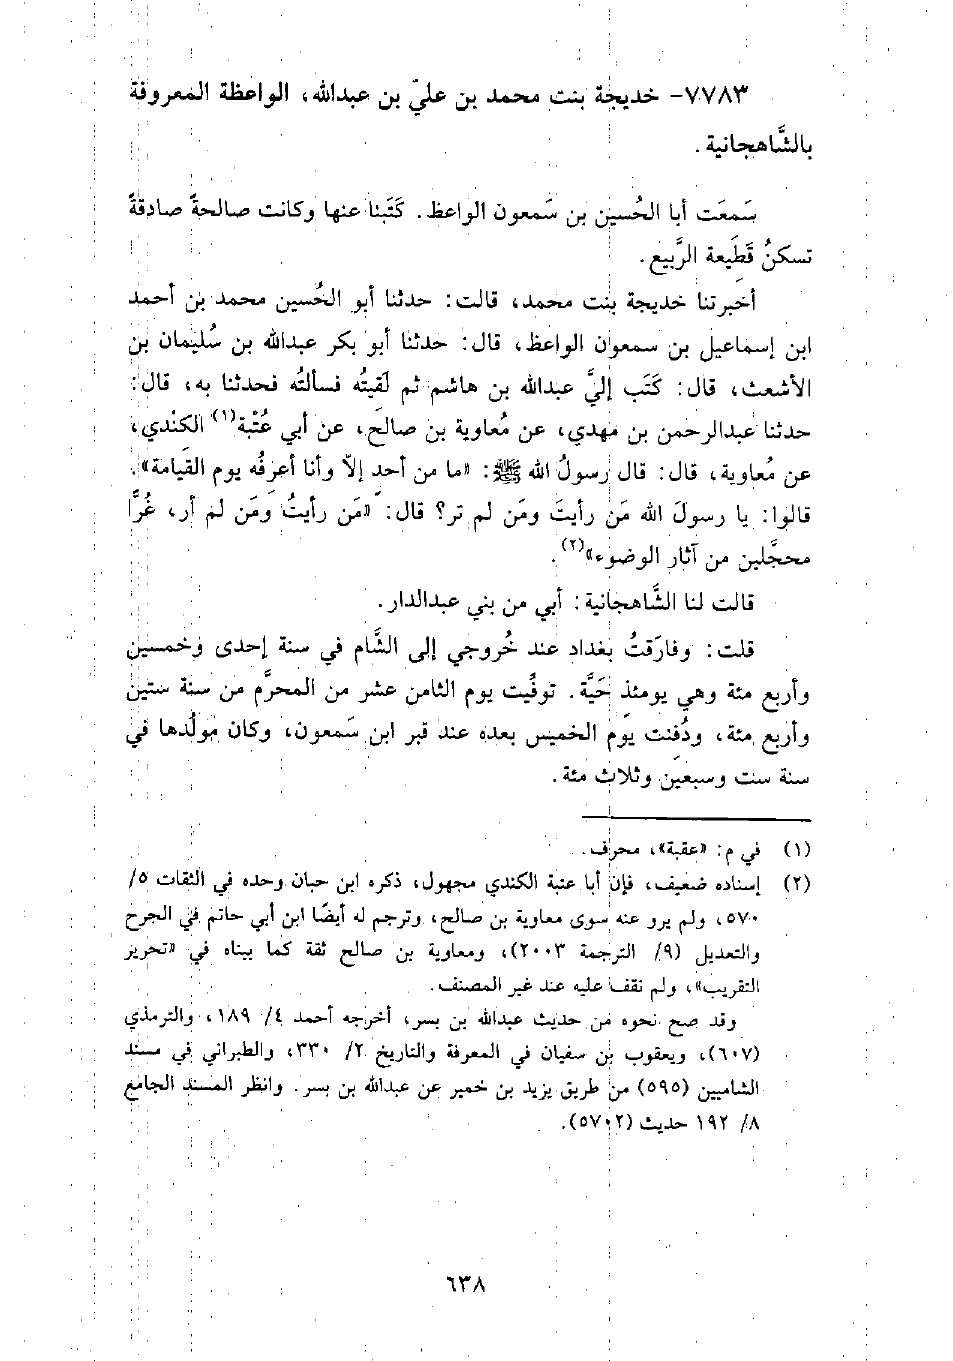 ٧٧٨٣- خديجة بنت محمد بن عليّ بن عبدالله، الواعظة المعروفة
بالشَّاهجانية.
سَمعَت أبا الحُسين بن سَمعون الواعظ. كَتَبنا عنها وكانت صالحةً صادقةً
تسكنُ قَطِيعة الرَّبيع.
أخبرتنا خديجة بنت محمد، قالت: حدثنا أبو الحُسين محمد بن أحمد
ابن إسماعيل بن سمعون الواعظ، قال: حدثنا أبو بكر عبدالله بن سُليمان بن
الأشعث، قال: كَتَب إليَّ عبدالله بن هاشم ثم لَقيتُه فسألتُه فحدثنا به، قال:
حدثنا عبدالرحمن بن مهدي، عن مُعاوية بن صالح، عن أبي عُتْبة(١) الكنْدي،
عن مُعاوية، قال: قال رسولُ الله ﷺ: «ما من أحدٍ إلاّ وأنا أعرِفُه يوم القيامة».
قالوا: يا رسولَ الله مَن رأيتَ ومَن لم تر؟ قال: «مَن رأيتُ ومَن لم أر، غُرًّا
محجَّلين من آثار الوضوء»(٢).
قالت لنا الشَّاهجانية: أبي من بني عبدالدار.
قلت: وفارَقتُ بغداد عند خُروجي إلى الشَّام في سنة إحدى وخمسين
وأربع مئة وهي يومئذٍ حَيَّة. توفِّيت يوم الثامن عشر من المحرَّم من سنة ستين
وأربع مئة، ودُفِنت يوم الخميس بعده عند قبر ابن سَمعون، وكان مولُدها في
سنة ست وسبعين وثلاث مئة.
(١) في م: «عقبة»، محرف.
(٢) إسناده ضعيف، فإن أبا عتبة الكندي مجهول، ذكره ابن حبان وحده في الثقات ٥/
٥٧٠، ولم يرو عنه سوى معاوية بن صالح، وترجم له أيضًا ابن أبي حاتم في الجرح
والتعديل (٩/ الترجمة ٢٠٠٣)، ومعاوية بن صالح ثقة كما بيناه في «تحرير
التقريب»، ولم نقف عليه عند غير المصنف.
وقد صح نحوه من حديث عبدالله بن بسر، أخرجه أحمد ٤/ ١٨٩، والترمذي
(٦٠٧)، ويعقوب بن سفيان في المعرفة والتاريخ ٢/ ٣٣٠، والطبراني في مسند
الشاميين (٥٩٥) من طريق يزيد بن خمير عن عبدالله بن بسر. وانظر المسند الجامع
٨/ ١٩٢ حديث (٥٧٠٢).
٦٣٨